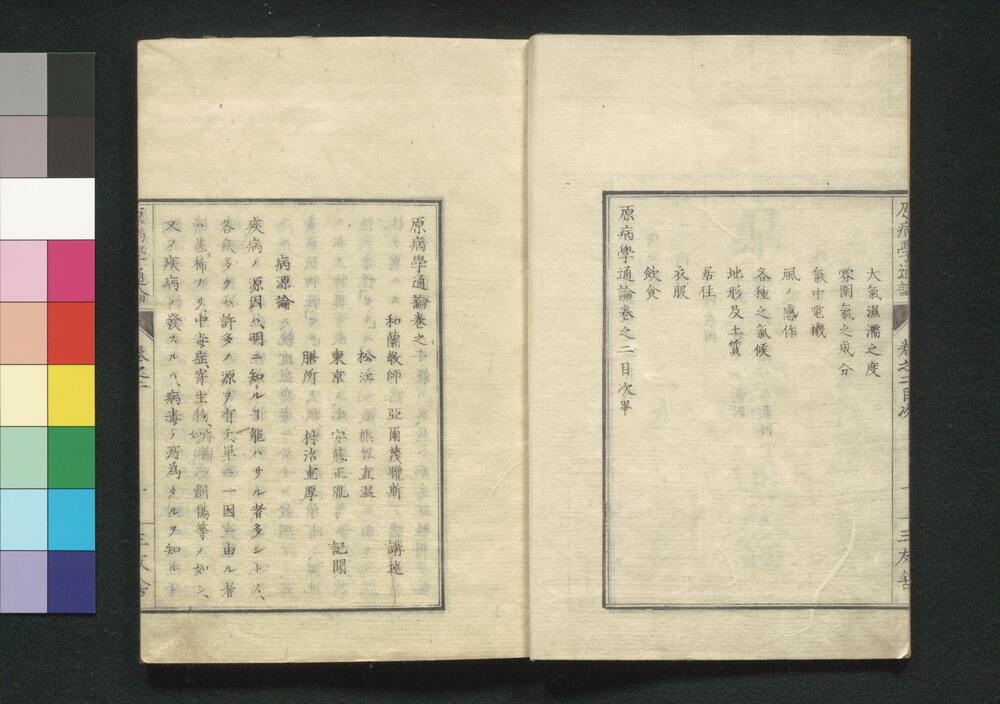 大氣濕濁之度
雰圍氣之成分
氣中電機
風ノ感作
各種之氣候
地形及土質
居住
衣服
飲食
原病學通論卷之二目次畢
三友舍
原病學通論卷之
和蘭敎師 亞爾茂聯斯 講述
松江 熊谷直温
東京 安藤正胤 記聞
膳所 村治重厚
病源論
疾病ノ源因ハ、明ニ知ルヿ能ハサル者多シトス、
各疾多クハ許多ノ源ヲ有シ、單ニ一因ニ由ル者
ハ甚稀ナリ、中毒症、寄生物 創傷等ノ如シ、
又タ疾病ノ發スルハ、病毒ノ所為タルヲ知ル
原病學通論